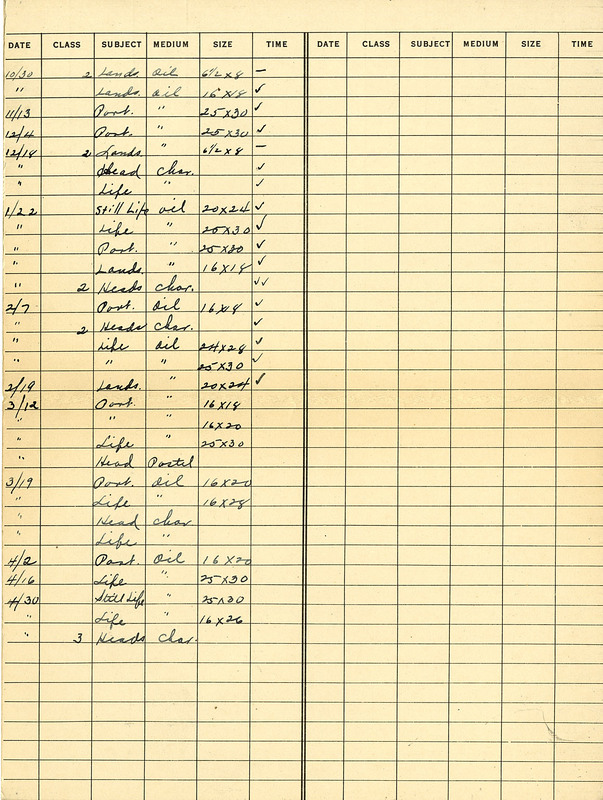 DATE CLASS SUBJECT MEDIUM SIZE TIME DATE CLASS SUBJECT MEDIUM SIZE TIME
10/30 2 Lands. Oil 6½ x 8 –
" Lands. Oil 16 x 18 ✓
11/13 Port. " 25 x 30 ✓
12/4 Port. " 25 x 30 ✓
12/18 2 Lands. " 6½ x 8 –
" Head Char. ✓
" Life " ✓
1/22 Still Life Oil 20 x 24 ✓
" Life " 25 x 30 ✓
" Port. " 25 x 30 ✓
" Lands. " 16 x 18 ✓
" 2 Heads Char. ✓✓
2/7 Port. Oil 16 x 18 ✓
" 2 Heads Char. ✓
" Life Oil 24 x 28 ✓
" " " 25 x 30 ✓
2/19 Lands. " 20 x 24 ✓
3/12 Port. " 16 x 18
" " " 16 x 20
" Life " 25 x 30
" Head Pastel
3/19 Port. Oil 16 x 20
" Life " 16 x 28
" Head Char
" Life "
4/2 Port. Oil 16 x 20
4/16 Life " 25 x 30
4/30 Still Life " 25 x 30
" Life " 16 x 26
" 3 Heads Char.